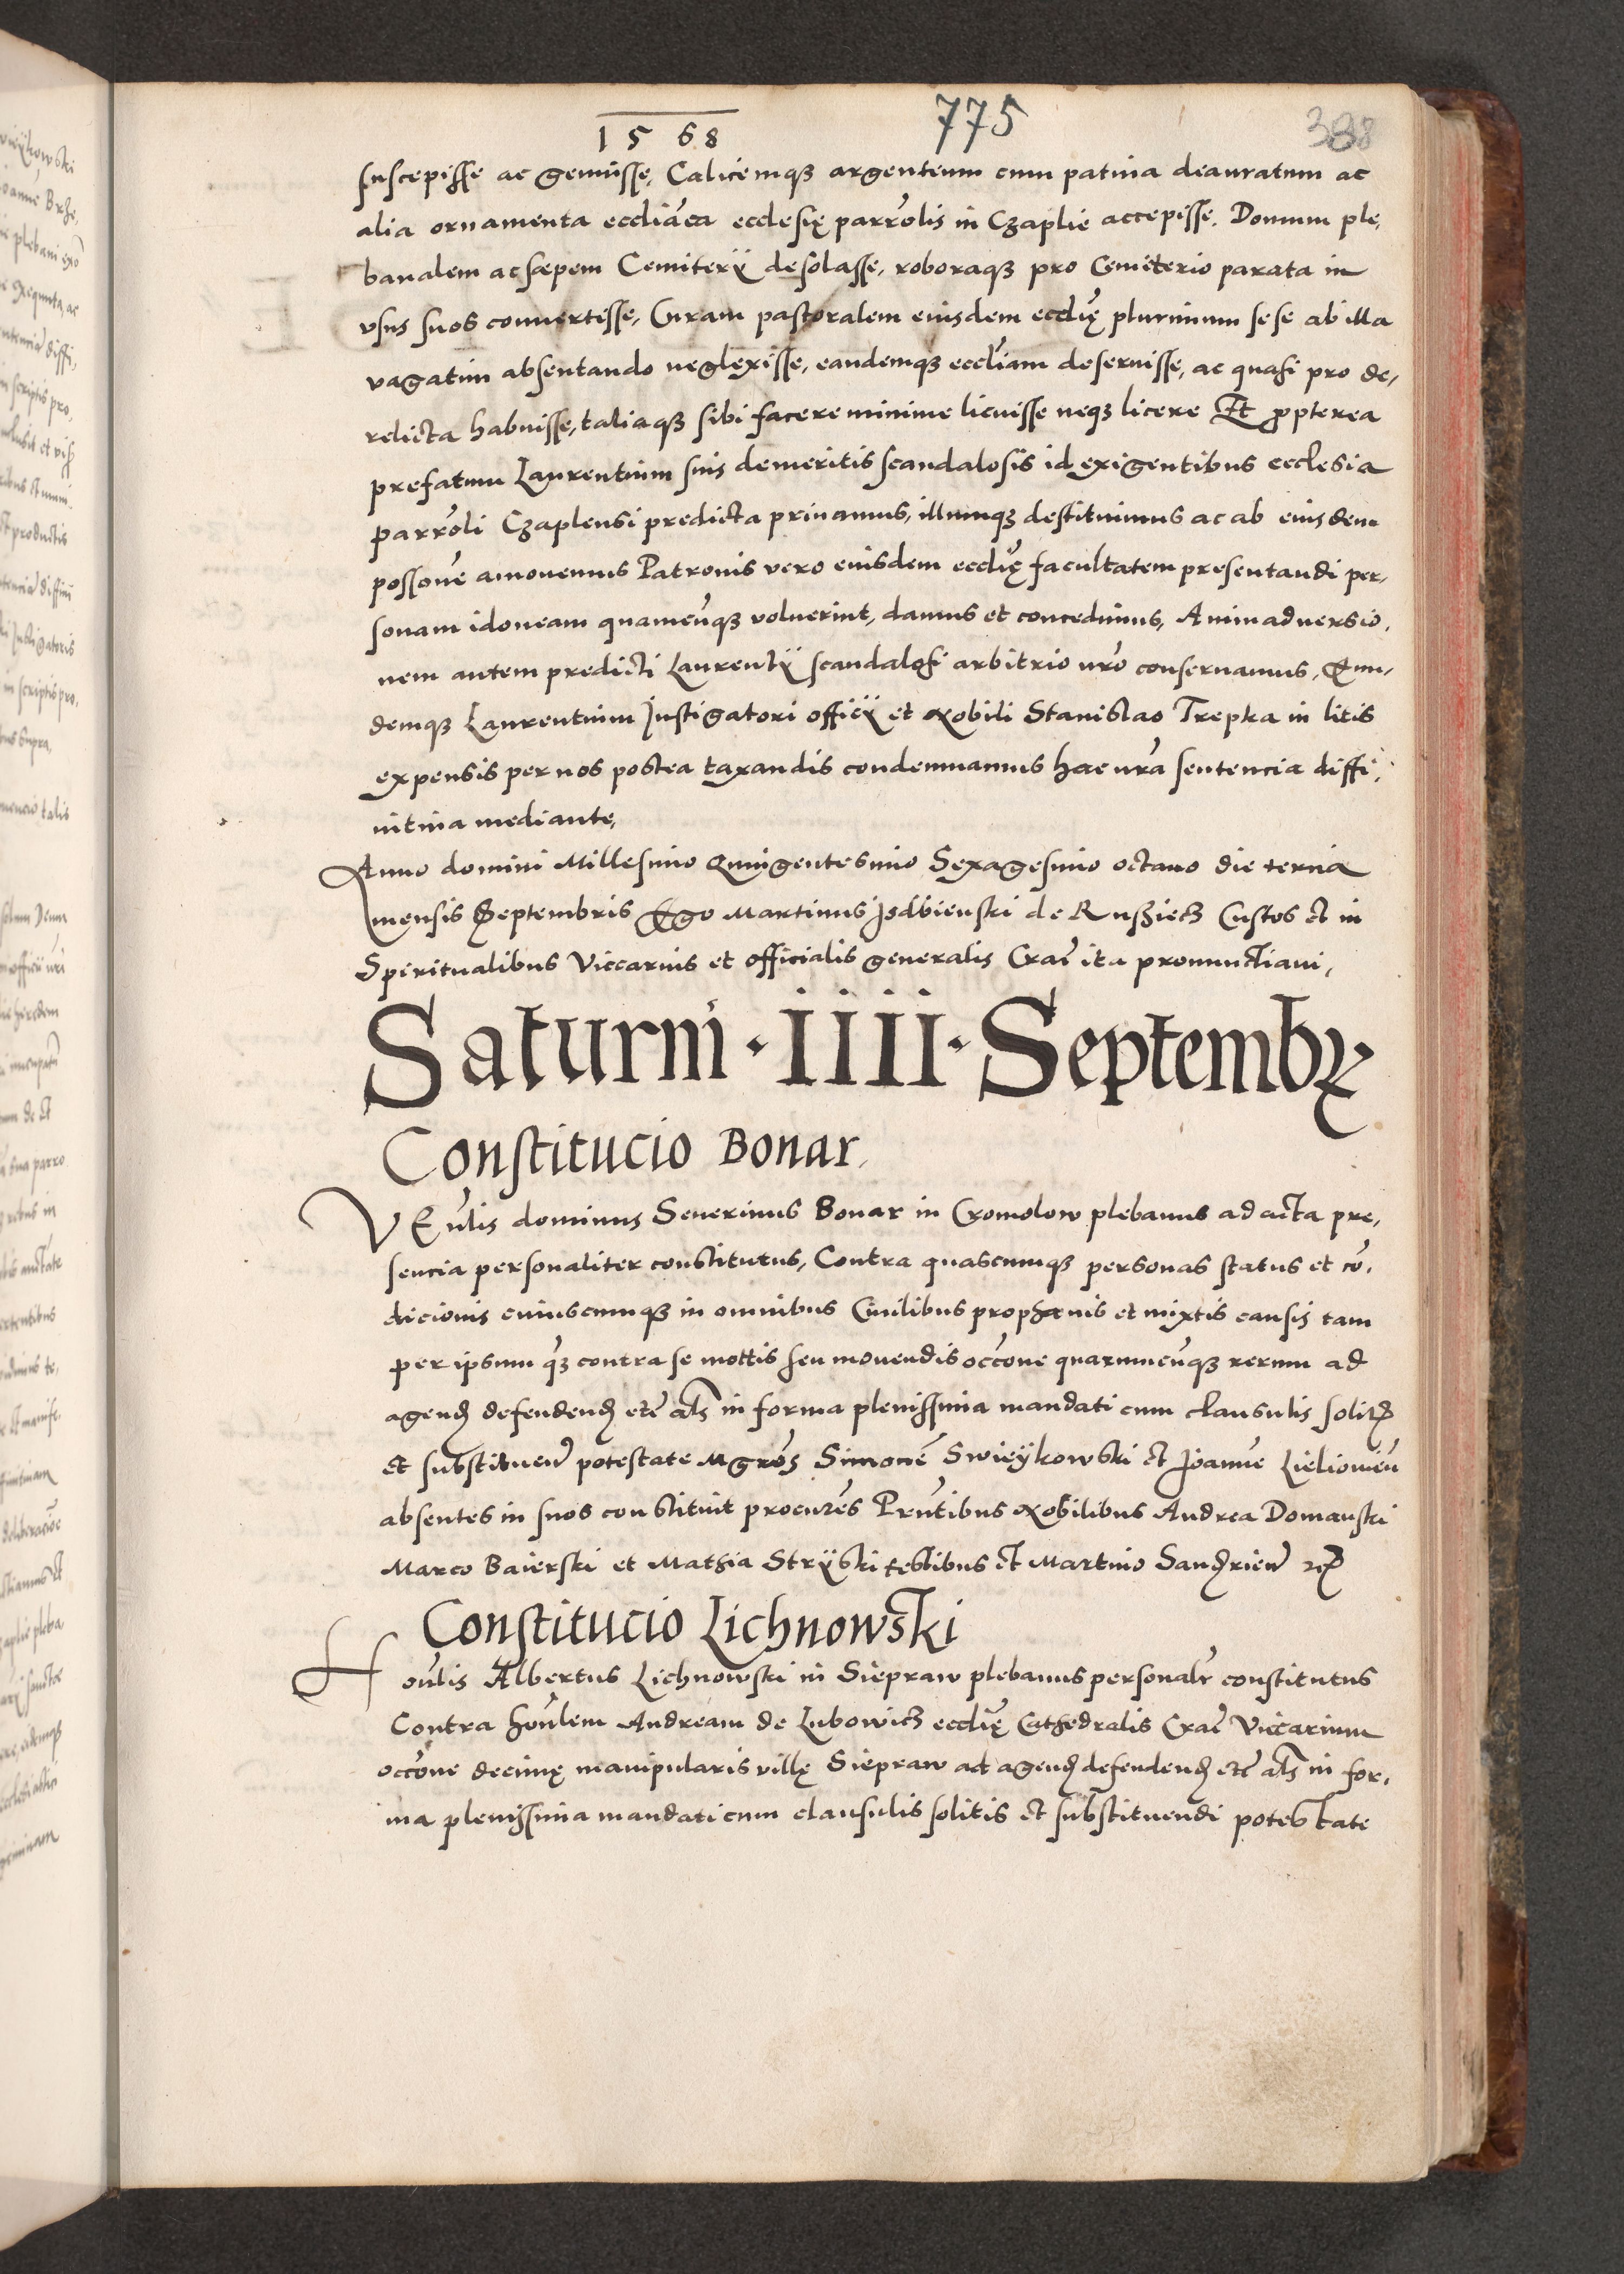 1568 775 388
suscepisse ac genuisse, Calicemqꝫ argenteum cum patina deauratum ac
alia ornamenta eccliãca ecclesię parrõlis in Czaplie accepisse. Domum ple,
banalem ac sæpem Cemiterÿ desolasse, roboraqꝫ pro Cemiterio parata in
vsus suos conuertisse, Curam pastoralem eiusdem ecclię plurimum sese ab illa
vagatim absentando neglexisse, eandemqꝫ eccliam deseruisse, ac quasi pro de,
relicta habuisse, taliaqꝫ sibi facere minime licuisse neqꝫ licere Et ꝓpterea
prefatum Laurentium suis demeritis scandalosis id exigentibus ecclesia
parrõli Czaplensi predicta priuamus, illumqꝫ destituimus ac ab eiusdem
possõne amouemus Patronis vero eiusdem ecclię facultatem presentandi per,
sonam idoneam quamcũqꝫ voluerint, damus et concedimus, Animaduersio,
nem autem predicti Laurentÿ scandalosi arbitrio nrõ conseruamus, Eun,
demqꝫ Laurentium Instigatori officÿ et Nobili Stanislao Trepka in litis
expensis per nos postea taxandis condemnamus hac nrã sentencia diffi,
nitiua mediante,
Anno domini Millesimo Quingentesimo Sexagesimo octauo die tercia
mensis Septembris Ego Martinus Isdbienski de Rusziecz Custos et in
Spiritualibus Viccarius et officialis generalis Craĉ ita pronunctiaui,
Saturni · IIII · Septembꝝ
Constitucio Bonar,
VEnlis dominus Seuerinus Bonar in Cromolow plebanus ad acta pre,
sencia personaliter constitutus, Contra quascunqꝫ personas status et cõ,
dicionis cuiuscunqꝫ in omnibus Ciuilibus prophanis et mixtis causis tam
per ipsum qꝫ contra se mottis seu mouendis occõne quarumcũqꝫ rerum ad
agend defendend etc̃ als in forma plenissima mandati cum clausulis solitꝭ
et substituend potestate Mgrõs Simonẽ Swieÿkowski et Joannẽ Lieliowiẽn
absentes in suos constituit procurẽs Prñtibus Nobilibus Andrea Domanski
Marco Baierski et Mathia Strÿski testibus et Martino Sandrien
Constitucio Lichnowski
Honlis Albertus Lichnowski in Siepraw plebanus personalr constitutus
Contra honlem Andream de Lubowicz ecclię Cathedralis Craĉ Viccarium
occõne decimę manipularis villę Siepraw ad agend defendend etc̃ als in for,
ma plenissima mandati cum clausulis solitis et substituendi potestate